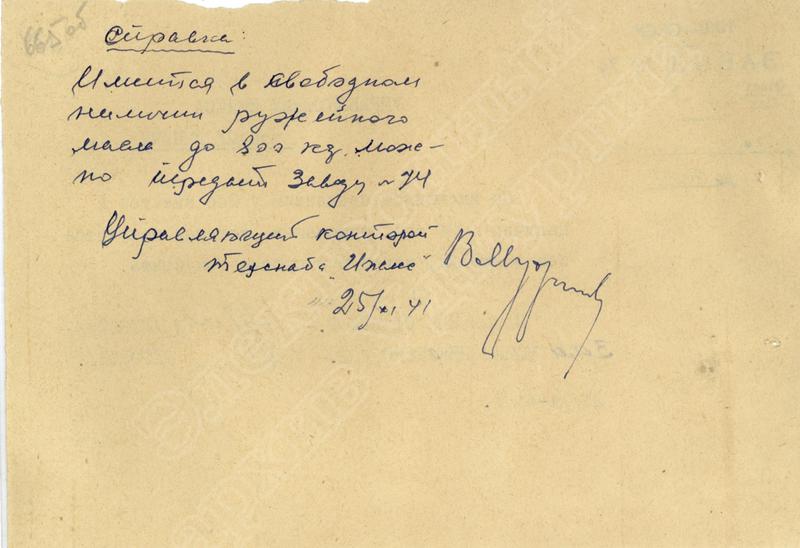 665 об
Справка:
Имеится в свободном
наличии ружейного
масла до 800 кг. Мож-
но передать Заводу № 74
Управляющий конторой
Техснаба "Ижмс"
25/XI 41